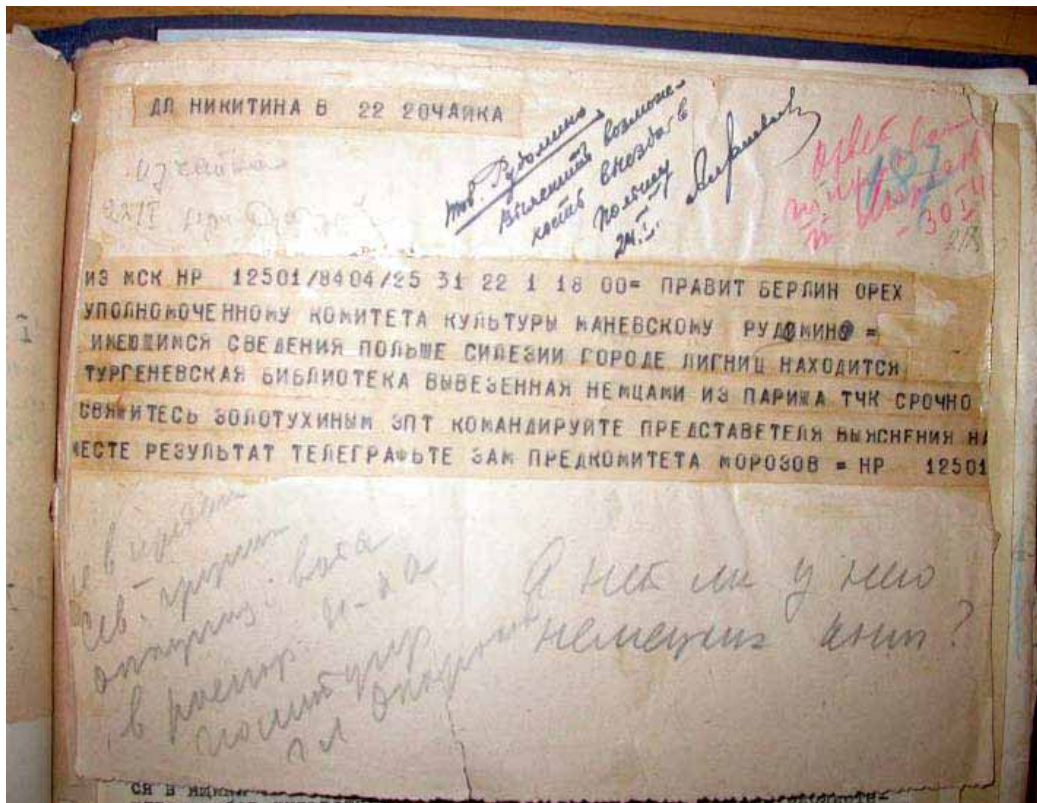 ДП НИКИТИНА В 22 20ЧАЙКА
тов. Рудомино
Выяснить возмож-
ность выезда в
Польшу
24.I.
187
30 I
ИЗ МСК НР 12501/8404/25 31 22 1 18 00= ПРАВИТ БЕРЛИН ОРЕХ
УПОЛНОМОЧЕННОМУ КОМИТЕТА КУЛЬТУРЫ МАНЕВСКОМУ РУДОМИНО =
ИМЕЮЩИМСЯ СВЕДЕНИЯ ПОЛЬШЕ СИЛЕЗИИ ГОРОДЕ ЛИГНИЦ НАХОДИТСЯ
ТУРГЕНЕВСКАЯ БИБЛИОТЕКА ВЫВЕЗЕННАЯ НЕМЦАМИ ИЗ ПАРИЖА ТЧК СРОЧНО
СВЯЖИТЕСЬ ЗОЛОТУХИНЫМ ЗПТ КОМАНДИРУЙТЕ ПРЕДСТАВЕТЕЛЯ ВЫЯСНЕНИЯ НА
МЕСТЕ РЕЗУЛЬТАТ ТЕЛЕГРАФЬТЕ ЗАМ ПРЕДКОМИТЕТА МОРОЗОВ = НР 12501
сев. группы
в распор.
А нет ли у него
немецких книг?
СЯ В ЯЩИК